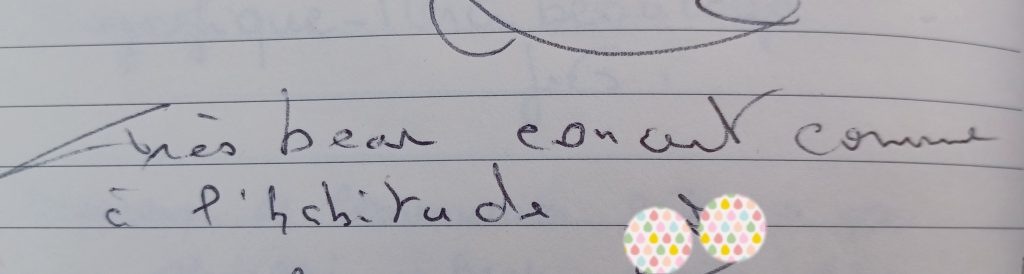 Très beau concert comme
à l'habitude